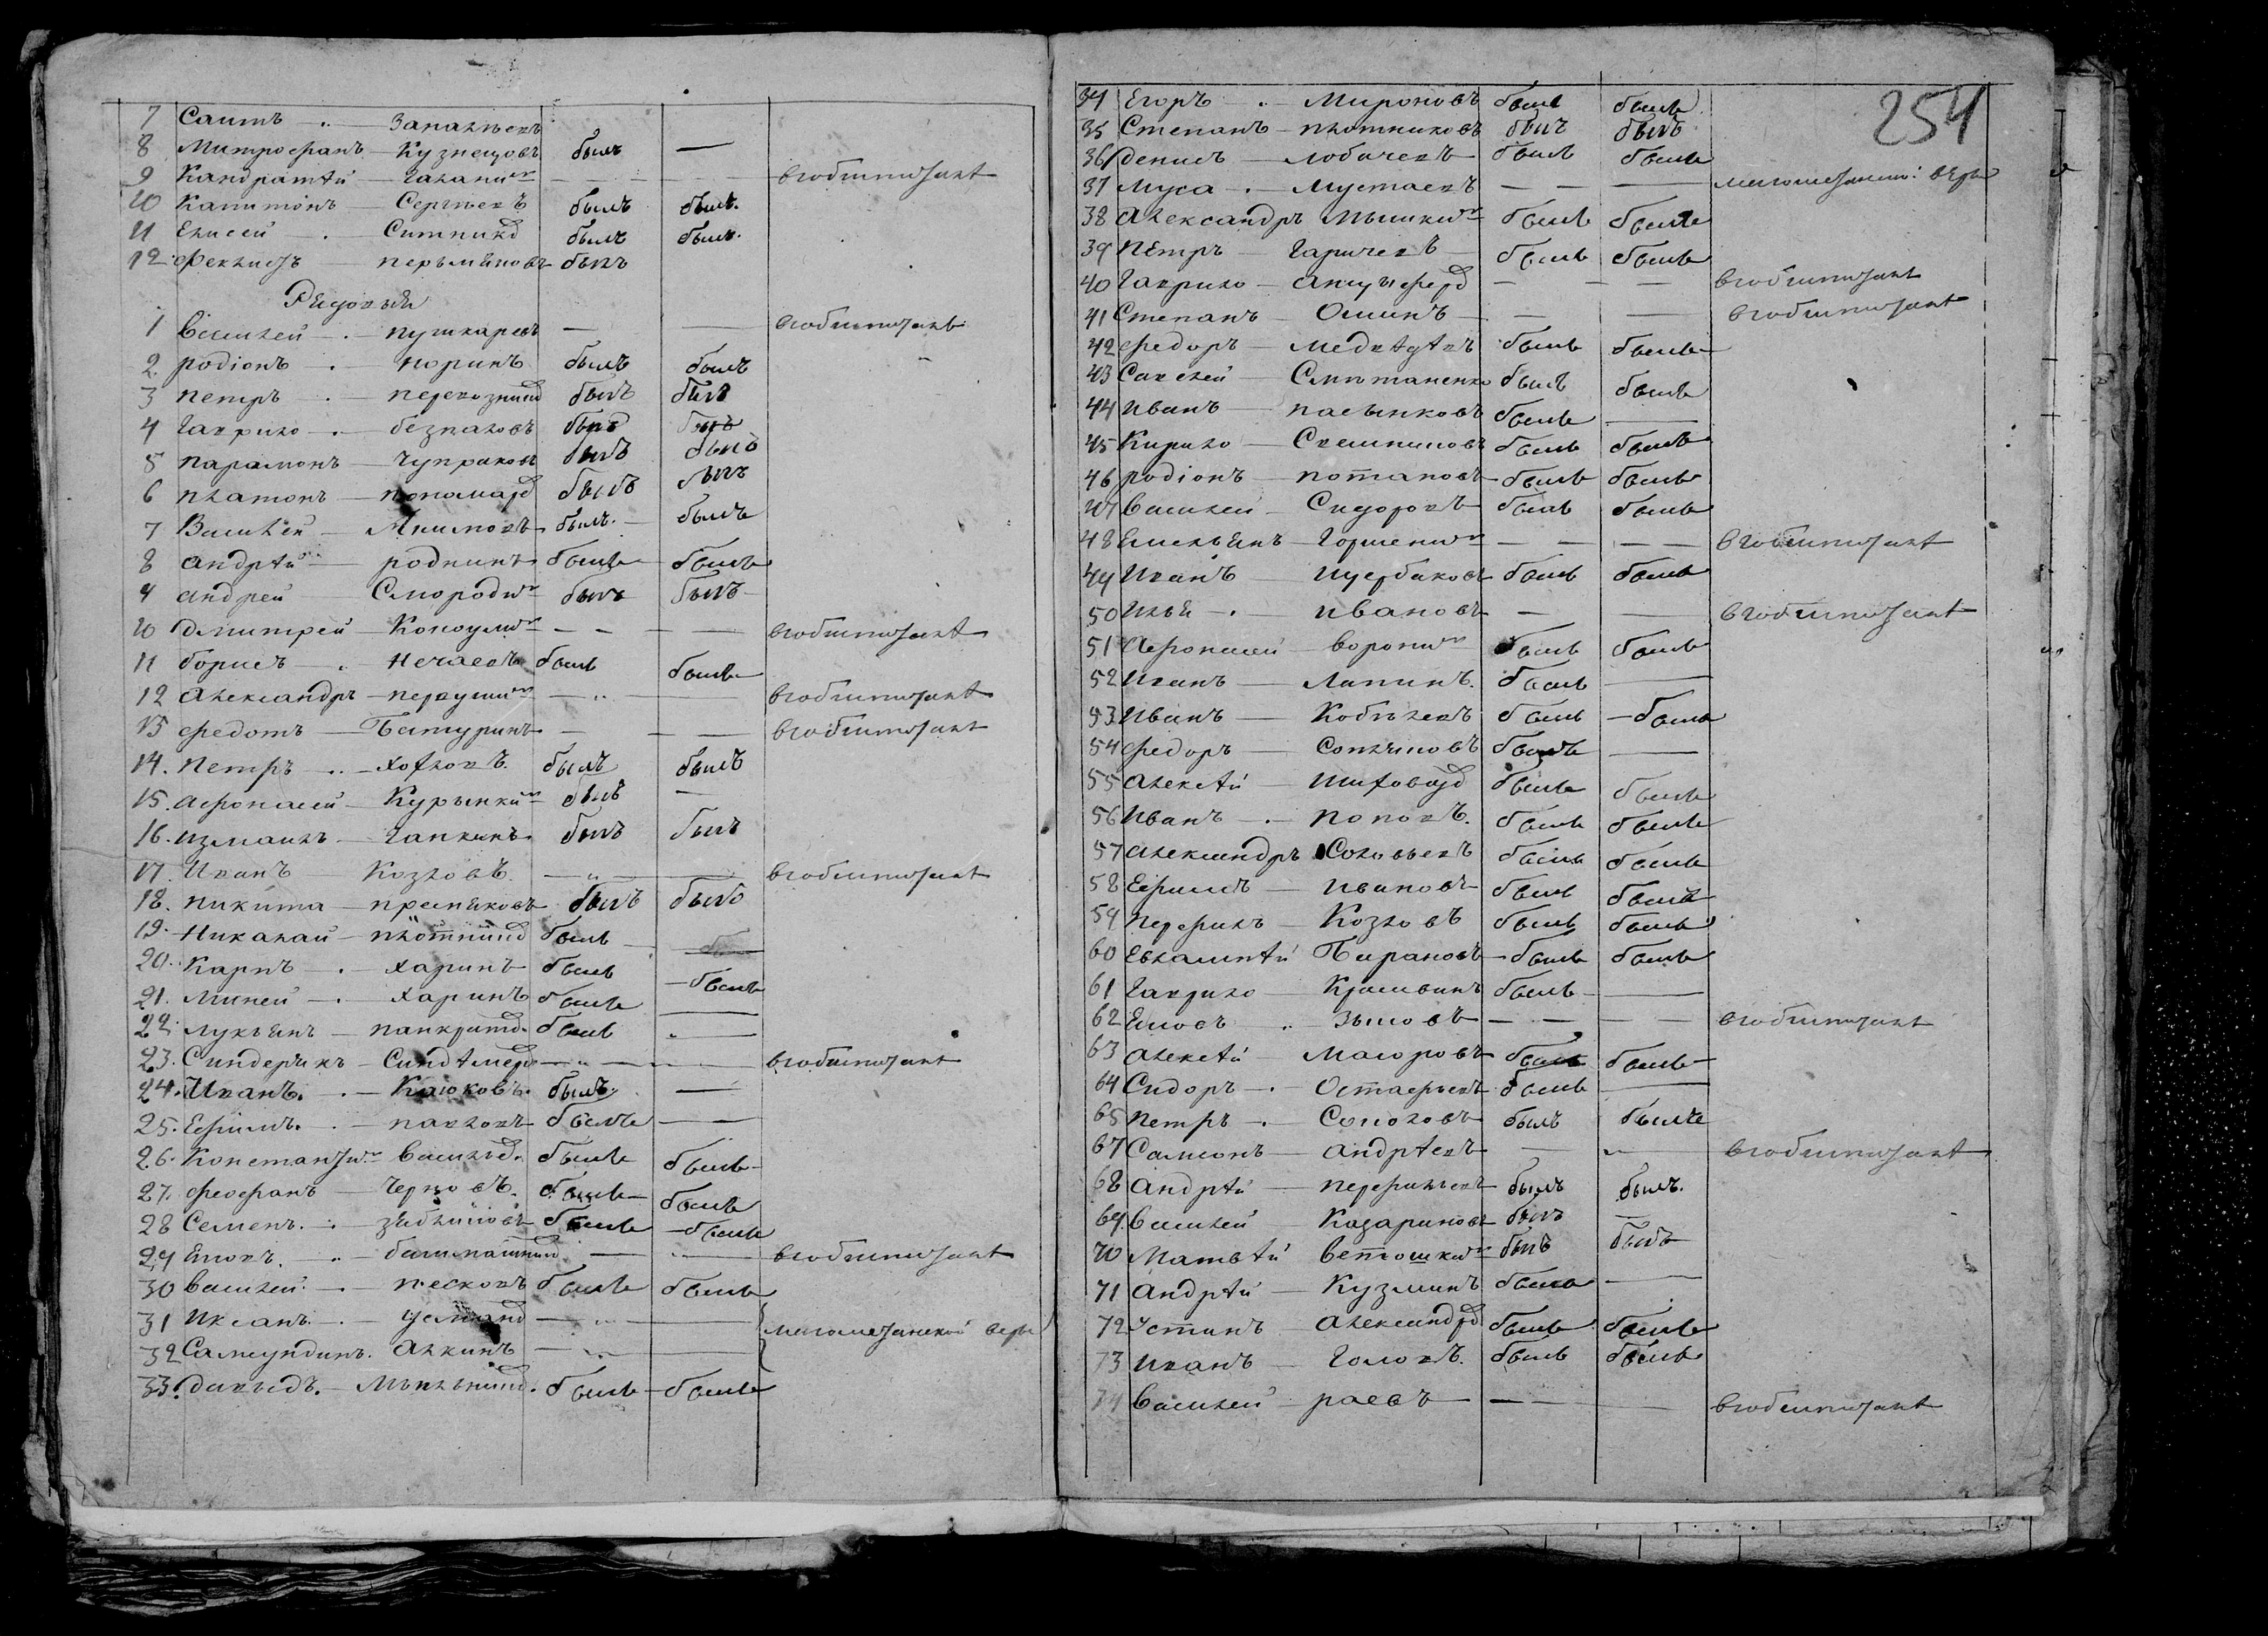 7 Саитъ Запалъевъ
8 Митрофанъ Кузнецовъ былъ —
9 Кандратѣй Галанин — — вгобшпитале
10 Капитонъ Сергѣевъ былъ былъ.
11 Елисей Ситнико былъ былъ.
12 Феклистъ перьминовъ былъ
Рядовыя
1 Василей пушкаревъ — — вгобшпитале
2 родіонъ Норинъ былъ былъ
3 петръ перевозник былъ былъ
4 Гаврило безпаловъ былъ былъ
5 парамонъ Чуприковъ былъ былъ
6 платонъ пономард былъ былъ
7 Василей Акимовъ былъ. былъ
8 андрѣй роднинъ былъ былъ
9 андрей Смородин былъ былъ
10 дмитрей — — вгобшпитале
11 борисъ Нечаевъ былъ былъ
12 Александръ первушин — — вгобшпитале
13 федотъ Батуринъ — — вгобшпитале
14. петръ Хохловъ. былъ былъ
15. афонасей Курынкин былъ —
16. измаилъ Гапкинъ былъ былъ
17. Иванъ Козловъ. — — вгобшпитале
18. никита пресняковъ былъ былъ
19. Николай плотник былъ
20. Карпъ Харинъ былъ былъ
21. Миней Харинъ былъ —
22. лукъянъ панкрато. былъ —
23. — — вгобшпитале
24. Иванъ. Каюковъ. былъ. —
25. Ефимъ. павловъ былъ —
26. Константин Василье. былъ былъ
27. феофанъ Черновъ. былъ былъ
28 Семенъ. зяблицовъ былъ былъ
29 Еновъ. башмашни — — вгобшпитале
30 василей песковъ былъ былъ
31 Усман — — магометанской веры
32 Алкинъ — —
33. давыдъ. Мыльник. былъ былъ
254
34 Егоръ Мироновъ былъ былъ
35 Степанъ плотниковъ былъ былъ
36 денисъ лобачевъ былъ былъ
37 муса мустаевъ — — магометанской: веры
38 Александръ Мышкин былъ былъ
39 петръ Гаричевъ былъ былъ
40 Гаврило Анцыфер — — вгобшпитале
41 Степанъ Оминъ — — вгобшпитале
42 федоръ медвѣдѣвъ былъ былъ
43 Савелей Сметаненко былъ былъ
44 иванъ пасынковъ былъ —
45 Кирило былъ былъ
46 родіонъ потаповъ былъ былъ
47 василей Сидоровъ былъ былъ
48 Емельянъ Горшенин — — вгобшпитале
49 Иванъ щербаковъ былъ былъ
50 илья ивановъ — — вгобшпитале
51 Афонасей воронин былъ былъ
52 Иванъ Лапинъ. былъ —
53 Иванъ Кобылевъ былъ былъ
54 федоръ былъ —
55 Алексѣй Шиховцо былъ былъ
56 иванъ поповъ. былъ былъ
57 Александръ Соловьевъ былъ былъ
58 Ефимъ Ивановъ былъ былъ
59 перфилъ Козловъ былъ былъ
60 Евлампѣй Барановъ былъ былъ
61 Гаврило Красивинъ былъ —
62 Еновъ Зыковъ — — вгобшпитале
63 Алексѣй Маюровъ былъ былъ
64 Сидоръ Остафьевъ былъ —
65 петръ Соколовъ былъ былъ
67 Самсонъ андрѣевъ — — вгобшпитале
68 андрѣй перфильевъ былъ былъ.
69. василей Казариновъ былъ —
70 Матвѣй ветошкин былъ былъ
71 андрѣй Кузминъ былъ —
72 устинъ Александро былъ былъ
73 иванъ Головъ. былъ былъ
74 василей раевъ — — вгобшпитале